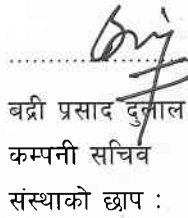 बद्री प्रसाद दुलाल
कम्पनी सचिव
संस्थाको छाप :